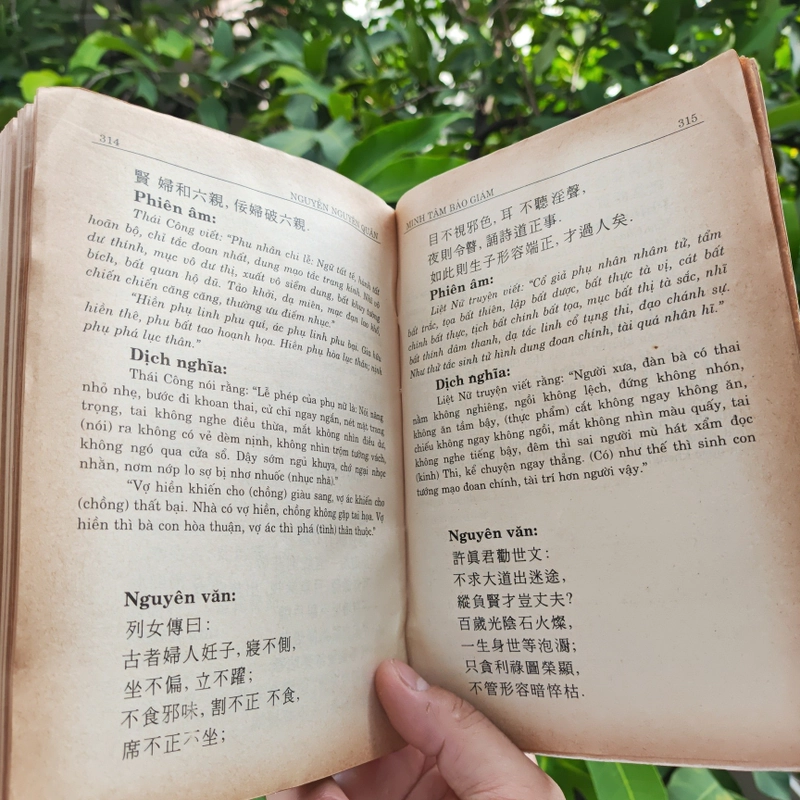 314
NGUYỄN NGUYÊN QUÂN
賢 婦和六親, 佞婦破六親.
Phiên âm:
Thái Công viết: “Phụ nhân chi lễ: Ngữ tất tế, hành tất
hoãn bộ, chỉ tắc đoan nhất, dung mạo tắc trang kính. Nhĩ vô
dư thính, mục vô dư thị, xuất vô siểm dung, bất khuy tường
bích, bất quan hộ dũ. Tảo khởi, dạ miên, mạc đạn lao khổ,
chiến chiến căng căng, thường ưu điểm nhục.”
“Hiền phụ linh phu quí, ác phụ linh phu bại. Gia hữu
hiền thê, phu bất tao hoạnh họa. Hiền phụ hòa lục thân, nịnh
phụ phá lục thân.”
Dịch nghĩa:
Thái Công nói rằng: “Lễ phép của phụ nữ là: Nói năng
nhỏ nhẹ, bước đi khoan thai, cử chỉ ngay ngắn, nét mặt trang
trọng, tai không nghe điều thừa, mắt không nhìn điều dư,
(nói) ra không có vẻ dèm nịnh, không nhìn trộm tường vách,
không ngó qua cửa sổ. Dậy sớm ngủ khuya, chớ ngại nhọc
nhằn, nơm nớp lo sợ bị nhơ nhuốc (nhục nhã).”
“Vợ hiền khiến cho (chồng) giàu sang, vợ ác khiến cho
(chồng) thất bại. Nhà có vợ hiền, chồng không gặp tai họa. Vợ
hiền thì bà con hòa thuận, vợ ác thì phá (tình) thân thuộc.”
Nguyên văn:
列女傳曰:
古者婦人妊子, 寢不側,
坐不偏, 立不躍;
不食邪味, 割不正 不食,
席不正不坐;
315
MINH TÂM BẢO GIÁM
目不視邪色, 耳 不聽淫聲,
夜則令瞽, 誦詩道正事.
如此則生子形容端正, 才過人矣.
Phiên âm:
Liệt Nữ truyện viết: “Cổ giả phụ nhân nhâm tử, tẩm
bất trắc, tọa bất thiên, lập bất dược, bất thực tà vị, cát bất
chính bất thực, tịch bất chính bất tọa, mục bất thị tà sắc, nhĩ
bất thính dâm thanh, dạ tắc linh cổ tụng thi, đạo chánh sự.
Như thử tắc sinh tử hình dung đoan chính, tài quá nhân hĩ.”
Dịch nghĩa:
Liệt Nữ truyện viết rằng: “Người xưa, đàn bà có thai
nằm không nghiêng, ngồi không lệch, đứng không nhón,
không ăn tầm bậy, (thực phẩm) cắt không ngay không ăn,
chiếu không ngay không ngồi, mắt không nhìn màu quấy, tai
không nghe tiếng bậy, đêm thì sai người mù hát xẩm đọc
(kinh) Thi, kể chuyện ngay thẳng. (Có) như thế thì sinh con
tướng mạo đoan chính, tài trí hơn người vậy.”
Nguyên văn:
許眞君勸世文:
不求大道出迷途,
縱負賢才豈丈夫?
百歲光陰石火燦,
一生身世等泡漚;
只食利祿圖榮顯,
不管形容暗悴枯.